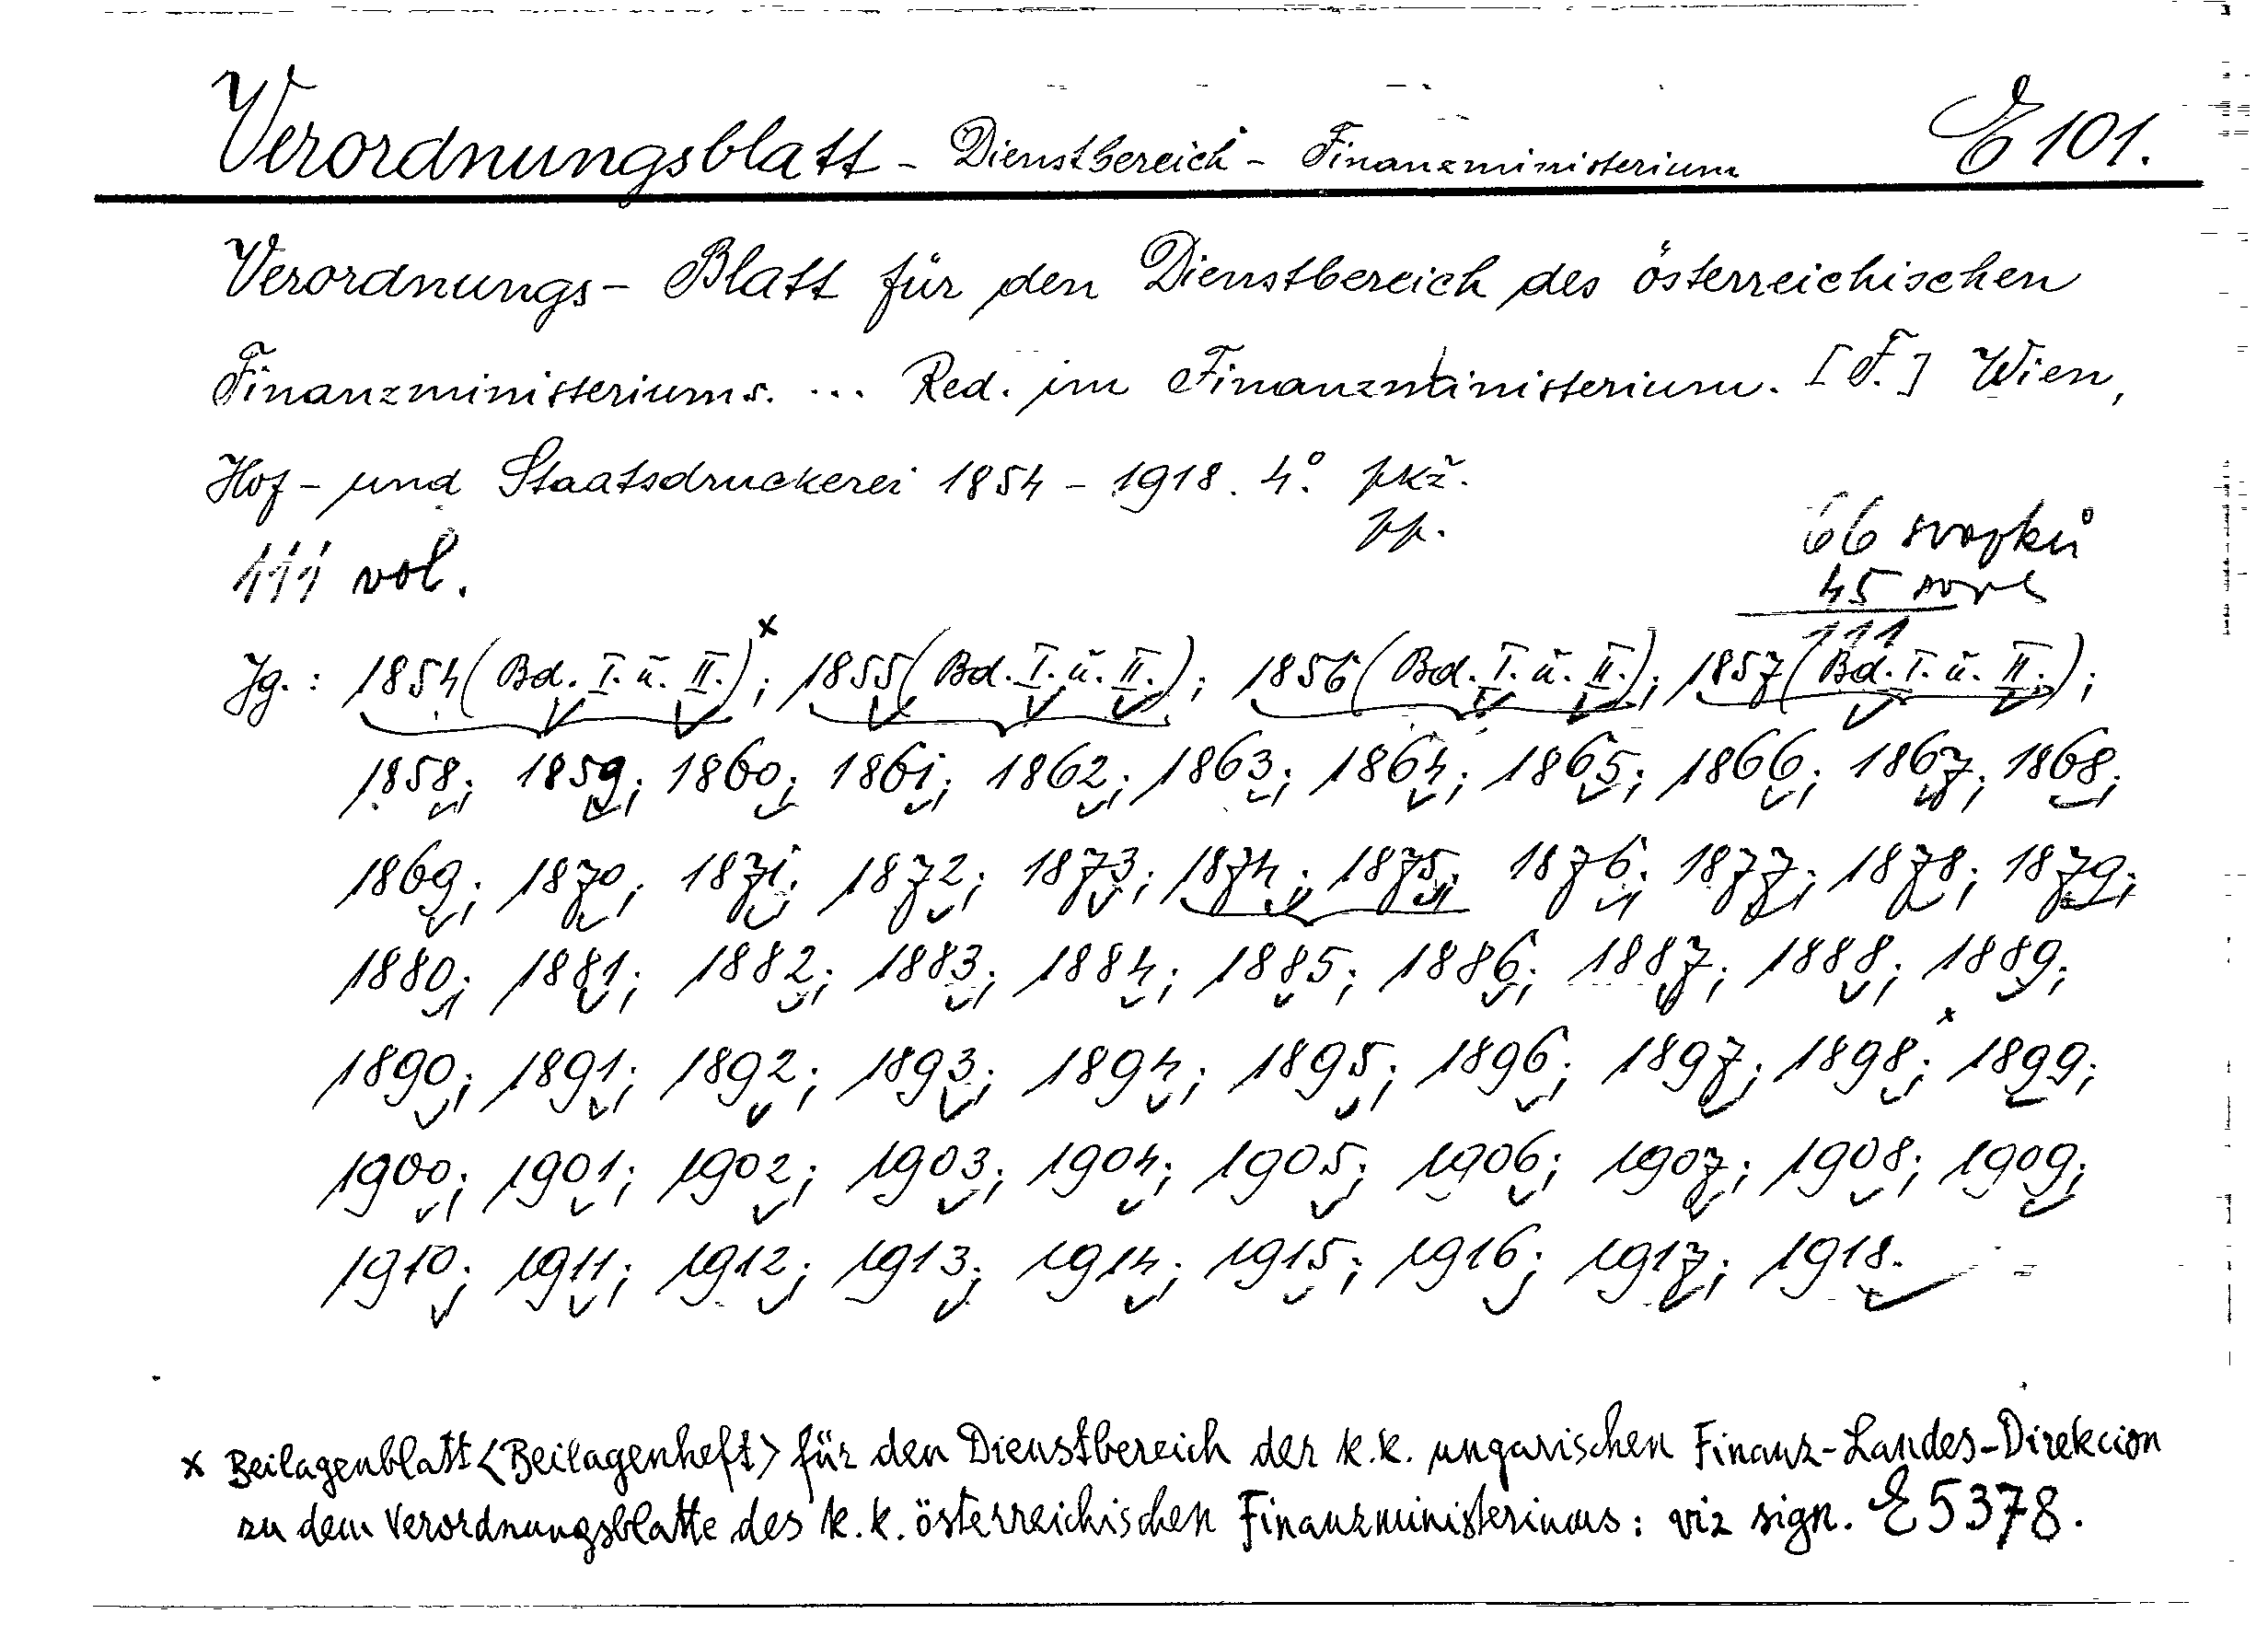 Verordnungsblatt - Dienstbereich - Finanzministerium E 101.
Verordnungs - Blatt für den Dienstbereich des österreichischen
Finanzministeriums. ... Red. im Finanzministerium. [F.] Wien,
Hof - und Staatsdruckerei 1854 - 1918. 4° pkž.
pp.
66 svazků
111 vol.
45
111
Jg.: 1854 (Bd. I. u. II.)x; 1855 (Bd. I. u. II.); 1856 (Bd. I. u. II.); 1857 (Bd. I. u. II.);
1858; 1859; 1860; 1861; 1862; 1863; 1864; 1865; 1866; 1867; 1868;
1869; 1870; 1871; 1872; 1873; 1874; 1875; 1876; 1877; 1878; 1879;
1880; 1881; 1882; 1883; 1884; 1885; 1886; 1887; 1888; 1889;
1890; 1891; 1892; 1893; 1894; 1895; 1896; 1897; 1898;x 1899;
1900; 1901; 1902; 1903; 1904; 1905; 1906; 1907; 1908; 1909;
1910; 1911; 1912; 1913; 1914; 1915; 1916; 1917; 1918.
x Beilagenblatt <Beilagenheft> für den Dienstbereich der k.k. ungarischen Finanz-Landes-Direkcion
zu dem Verordnungsblatte des k.k. österreichischen Finanzministeriums: viz sign. E 5378.